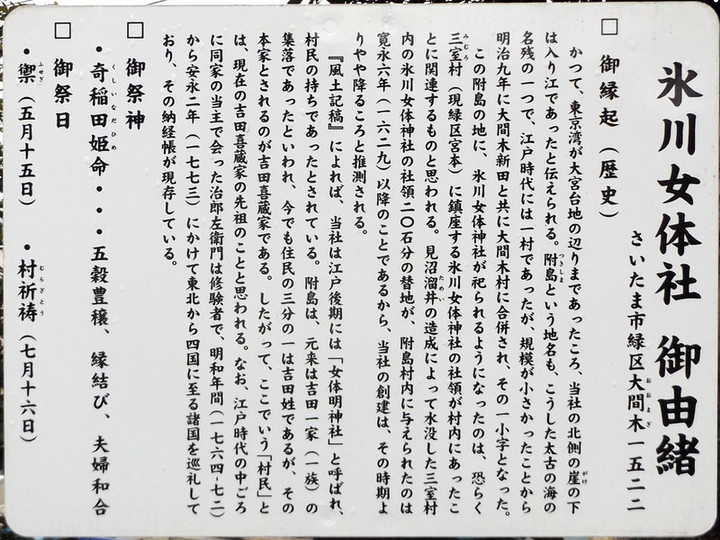 氷川女体社 御由緒
さいたま市緑区大間木一五二二
□ 御縁起（歴史）
かつて、東京湾が大宮台地の辺りまであったころ、当社の北側の崖の下
は入り江であったと伝えられる。附島という地名も、こうした太古の海の
名残の一つで、江戸時代には一村であったが、規模が小さかったことから
明治九年に大間木新田と共に大間木村に合併され、その一小字となった。
この附島の地に、氷川女体神社が祀られるようになったのは、恐らく
三室村（現緑区宮本）に鎮座する氷川女体神社の社領が村内にあったこ
とに関連するものと思われる。見沼溜井の造成によって水没した三室村
内の氷川女体神社の社領二〇石分の替地が、附島村内に与えられたのは
寛永六年（一六二九）以降のことであるから、当社の創建は、その時期よ
りやや降るころと推測される。
『風土記稿』によれば、当社は江戸後期には「女体明神社」と呼ばれ、
村民の持ちであったとされている。附島は、元来は吉田一家（一族）の
集落であったといわれ、今でも住民の三分の一は吉田姓であるが、その
本家とされるのが吉田喜蔵家である。したがって、ここでいう「村民」と
は、現在の吉田喜蔵家の先祖のことと思われる。なお、江戸時代の中ごろ
に同家の当主で会った治郎左衛門は修験者で、明和年間（一七六四-七二）
から安永二年（一七七三）にかけて東北から四国に至る諸国を巡礼して
おり、その納経帳が現存している。
□ 御祭神
・奇稲田姫命・・・五穀豊穣、縁結び、夫婦和合
□ 御祭日
・禦（五月十五日） ・村祈祷（七月十六日）